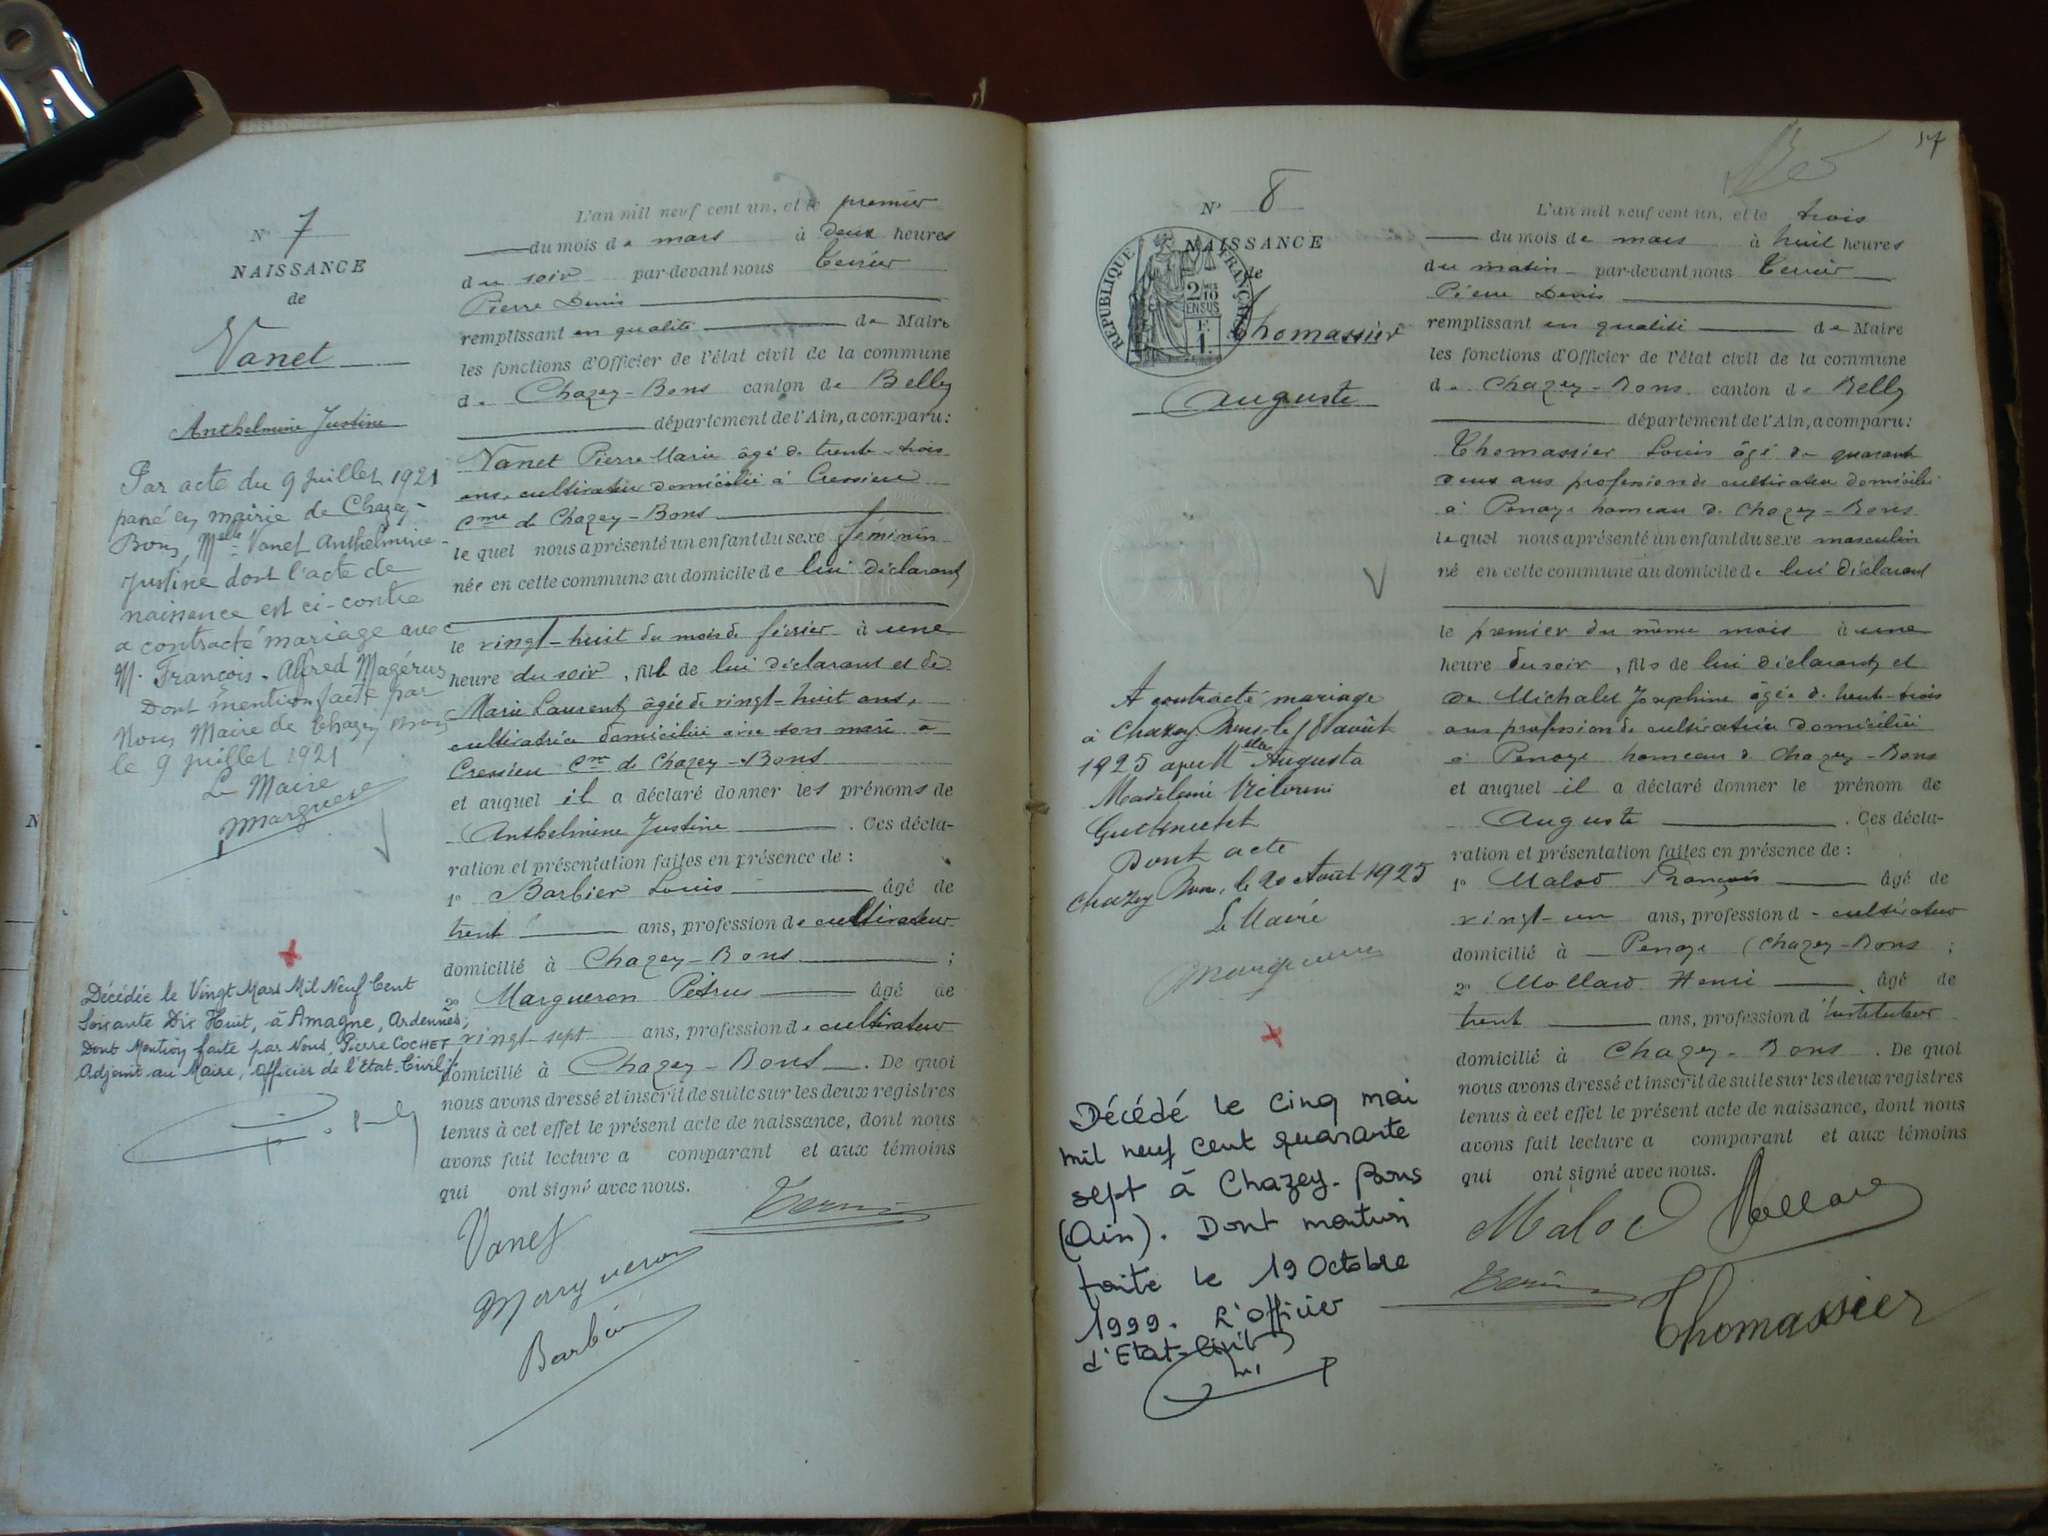 N° 7
NAISSANCE
de
Vanet
Anthelmine Justine
Par acte du 9 juillet 1921
passé en mairie de Chazey-
Bons, Melle Vanet Anthelmine-
Justine dont l'acte de
naissance est ci-contre
a contracté mariage avec
M. François-Alfred Magérus
Dont mention faite par
Nous Maire de Chazey Bons
le 9 juillet 1921
Le Maire
Décédée le Vingt Mars Mil Neuf Cent
Soixante Dix Huit, à Amagne, Ardennes;
Dont Mention faite par Nous, Pierre COCHET,
Adjoint au Maire, Officier de l'état-Civil;
L'an mil neuf cent un, et le premier
du mois de mars à deux heures
du soir par-devant nous Terrier
Pierre Denis
remplissant en qualité de Maire
les fonctions d'Officier de l'état civil de la commune
de Chazey-Bons canton de Belley
département de l'Ain, a comparu:
Vanet Pierre Marie âgé de trente-trois
ans, cultivateur domicilié à Cressieu
Cme de Chazey-Bons
lequel nous a présenté un enfant du sexe féminin
née en cette commune au domicile de lui déclarant
le vingt-huit du mois de février à une
heure du soir, fille de lui déclarant et de
Marie Laurent, âgée de vingt-huit ans,
cultivatrice domiciliée avec son mari à
Cressieu Cne de Chazey-Bons
et auquel il a déclaré donner les prénoms de
Anthelmine Justine. Ces décla-
ration et présentation faites en présence de:
1° Barbier Louis âgé de
trente ans, profession de cultivateur
domicilié à Chazey-Bons;
2° Margueron Pétrus âgé de
vingt-sept ans, profession de cultivateur
domicilié à Chazey-Bons. De quoi
nous avons dressé et inscrit de suite sur les deux registres
tenus à cet effet le présent acte de naissance, dont nous
avons fait lecture a comparant et aux témoins
qui ont signé avec nous.
Vanet
Margueron
Barbier
57
N° 8
NAISSANCE
de
RÉPUBLIQUE FRANÇAISE
2/10
EN SUS
F.
1.
Thomassier
Auguste
A contracté mariage
à Chazey Bons, le 18 août
1925 avec Mlle Augusta
Madeleine
Dont acte
Chazey Bons, le 20 Août 1925
Le Maire
Décédé le cinq mai
mil neuf cent quarante
sept à Chazey-Bons
(Ain). Dont mention
faite le 19 Octobre
1999. L'Officier
d'Etat-Civil
L'an mil neuf cent un, et le trois
du mois de mars à huit heures
du matin par-devant nous Terrier
Pierre Denis
remplissant en qualité de Maire
les fonctions d'Officier de l'état civil de la commune
de Chazey-Bons canton de Belley
département de l'Ain, a comparu:
Thomassier Louis âgé de quarante
deux ans profession de cultivateur domicilié
à Penaye hameau de Chazey-Bons
lequel nous a présenté un enfant du sexe masculin
né en cette commune au domicile de lui déclarant
le premier du même mois à une
heure du soir, fils de lui déclarant et
de Michalet Joséphine âgée de trente-trois
ans profession de cultivatrice domiciliée
à Penaye hameau de Chazey-Bons
et auquel il a déclaré donner le prénom de
Auguste. Ces décla-
ration et présentation faites en présence de:
1° Malod François âgé de
vingt-un ans, profession de cultivateur
domicilié à Penaye (Chazey-Bons;
2° Mollard Henri âgé de
trente ans, profession d'instituteur
domicilié à Chazey-Bons. De quoi
nous avons dressé et inscrit de suite sur les deux registres
tenus à cet effet le présent acte de naissance, dont nous
avons fait lecture a comparant et aux témoins
qui ont signé avec nous.
Malod Mollard
Thomassier